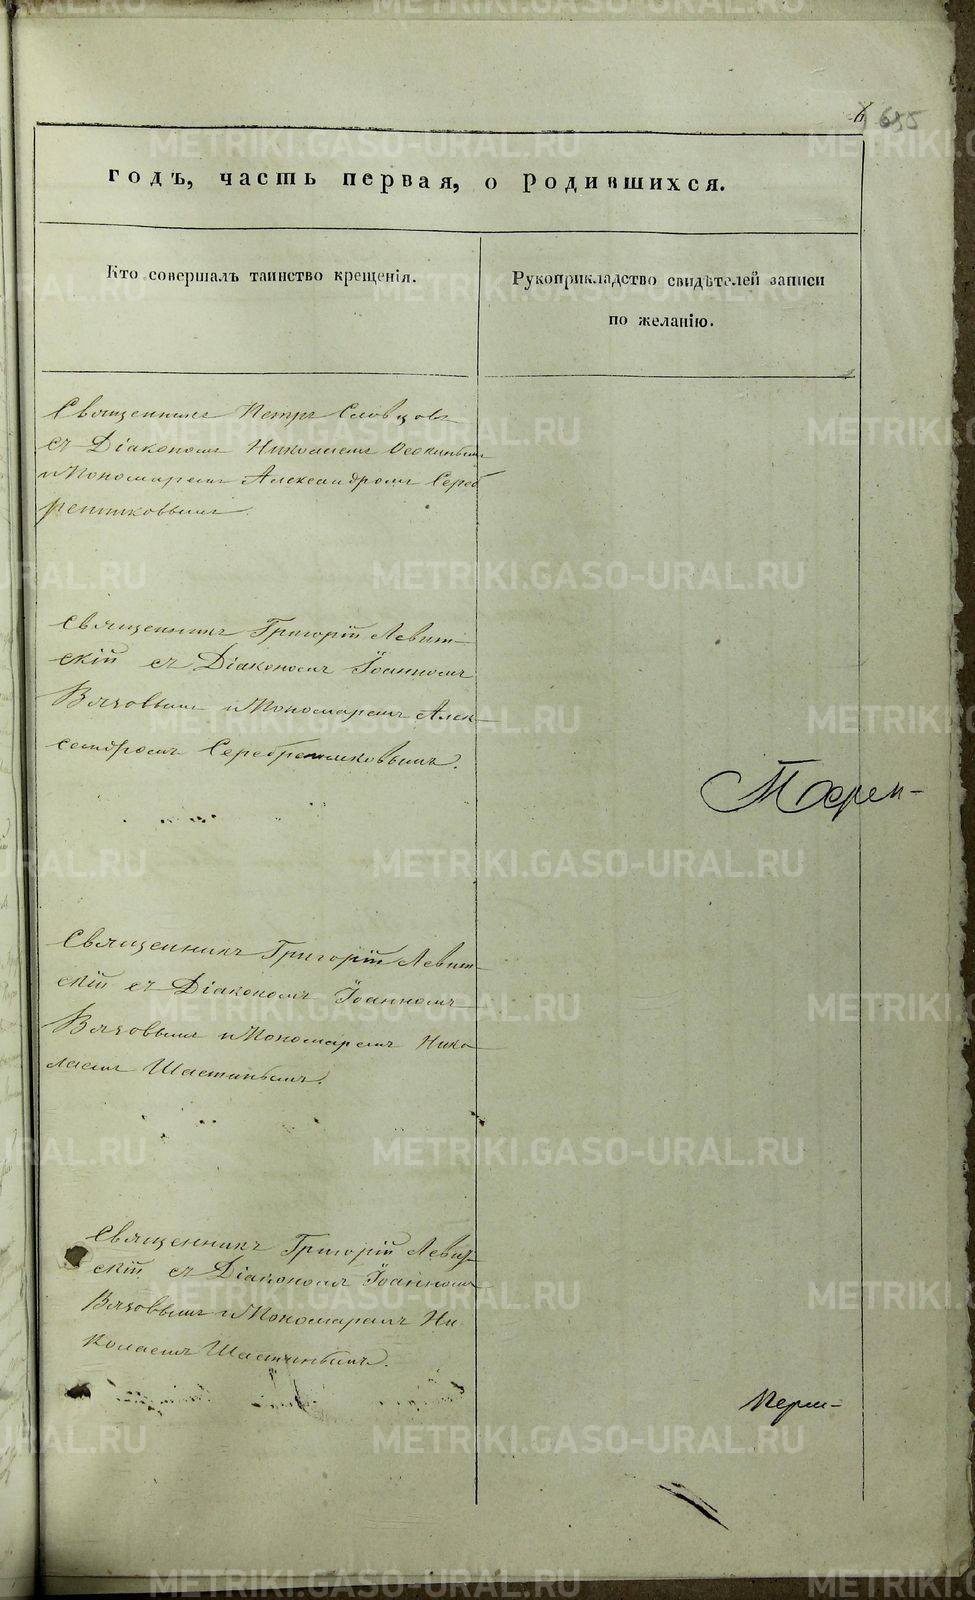 655
годъ, часть первая, о родившихся.
Кто совершалъ таинство крещенія.
Рукоприкладство свидѣтелей записи
по желанію.
Священникъ Петръ Словцовъ
съ Діакономъ Николаемъ
и Пономаремъ Александромъ Сереб
ренниковымъ.
Священникъ Григорій Левит-
скій съ Діакономъ Іоанномъ
Вяховымъ и Пономаремъ Алек-
сандромъ Серебрениковымъ.
Священникъ Григорій Левит-
скій съ Діакономъ Іоанномъ
Вяховымъ и Пономаремъ Нико-
лаемъ Шастинымъ.
Священникъ Григорій Левит-
скій съ Діакономъ Іоанномъ
Вяховымъ и Пономаремъ Ни
колаемъ Шастинымъ.
Перм-
METRIKI.GASO-URAL.RU